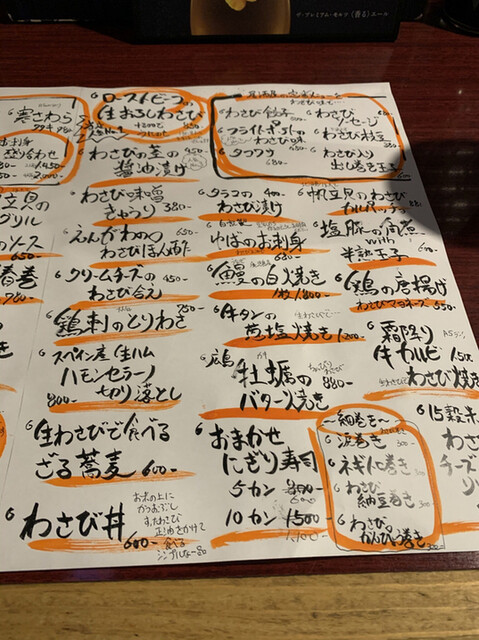 ザ・プレミアム・モルツ〈香る〉エール
寒さわら
盛り合わせ
1,450
2,000-
グリル
ソース
650-
春巻
780-
ローストビーフの
生おろしわさび
わさびの茎の
醤油漬け
わさび味噌
きゅうり 380-
えんがわの
わさびぽん酢 750-
クリームチーズの 450-
わさび和え
鶏刺のとりわさ
750-
スペイン産 生ハム
ハモンセラーノ
800- 切り落とし
生わさびで食べる
ざる蕎麦 600-
わさび丼 600-
お米の上に
かつおぶし
正油をかけて
食べる
シンプルな一品
居酒屋の定番メニューを
わさび味で…
わさび餃子
フライドポテトの
わさび味
タコワサ
わさび
ソーセージ
わさび枝豆
わさび入り
出し巻き玉子
タコラの 400-
わさび漬け
自家製
ゆばのお刺身
680-
鰻の白焼き
1枚 1,800-
牛タンの
葱塩焼き 1,200-
広島
牡蠣の
880-
バター焼き
おまかせ
にぎり寿司
5カン 800-
600-
10カン 1500
1,100-
帆立貝のわさび
カルパッチョ
塩豚の角煮
with
半熟玉子
鶏の唐揚げ
わさびマヨネーズ 550
霜降り
牛カルビ
わさび焼き
〜細巻き〜
涙巻き 300-
ネギトロ巻き
わさび
納豆巻き 300
わさびの
かんぴょう巻き 300-
15穀米
わさ
チーズ